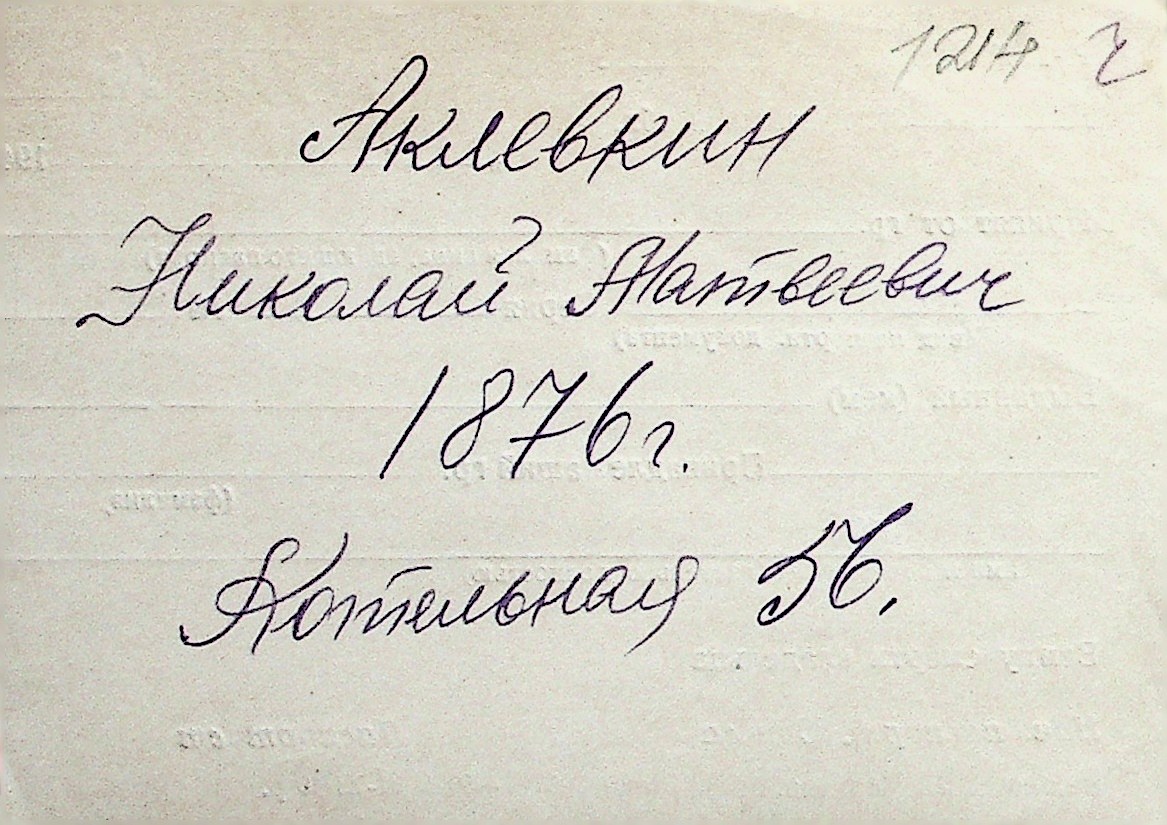 1214 ч
Аклевкин
Николай Матвеевич
1876 г.
Котельная 56.